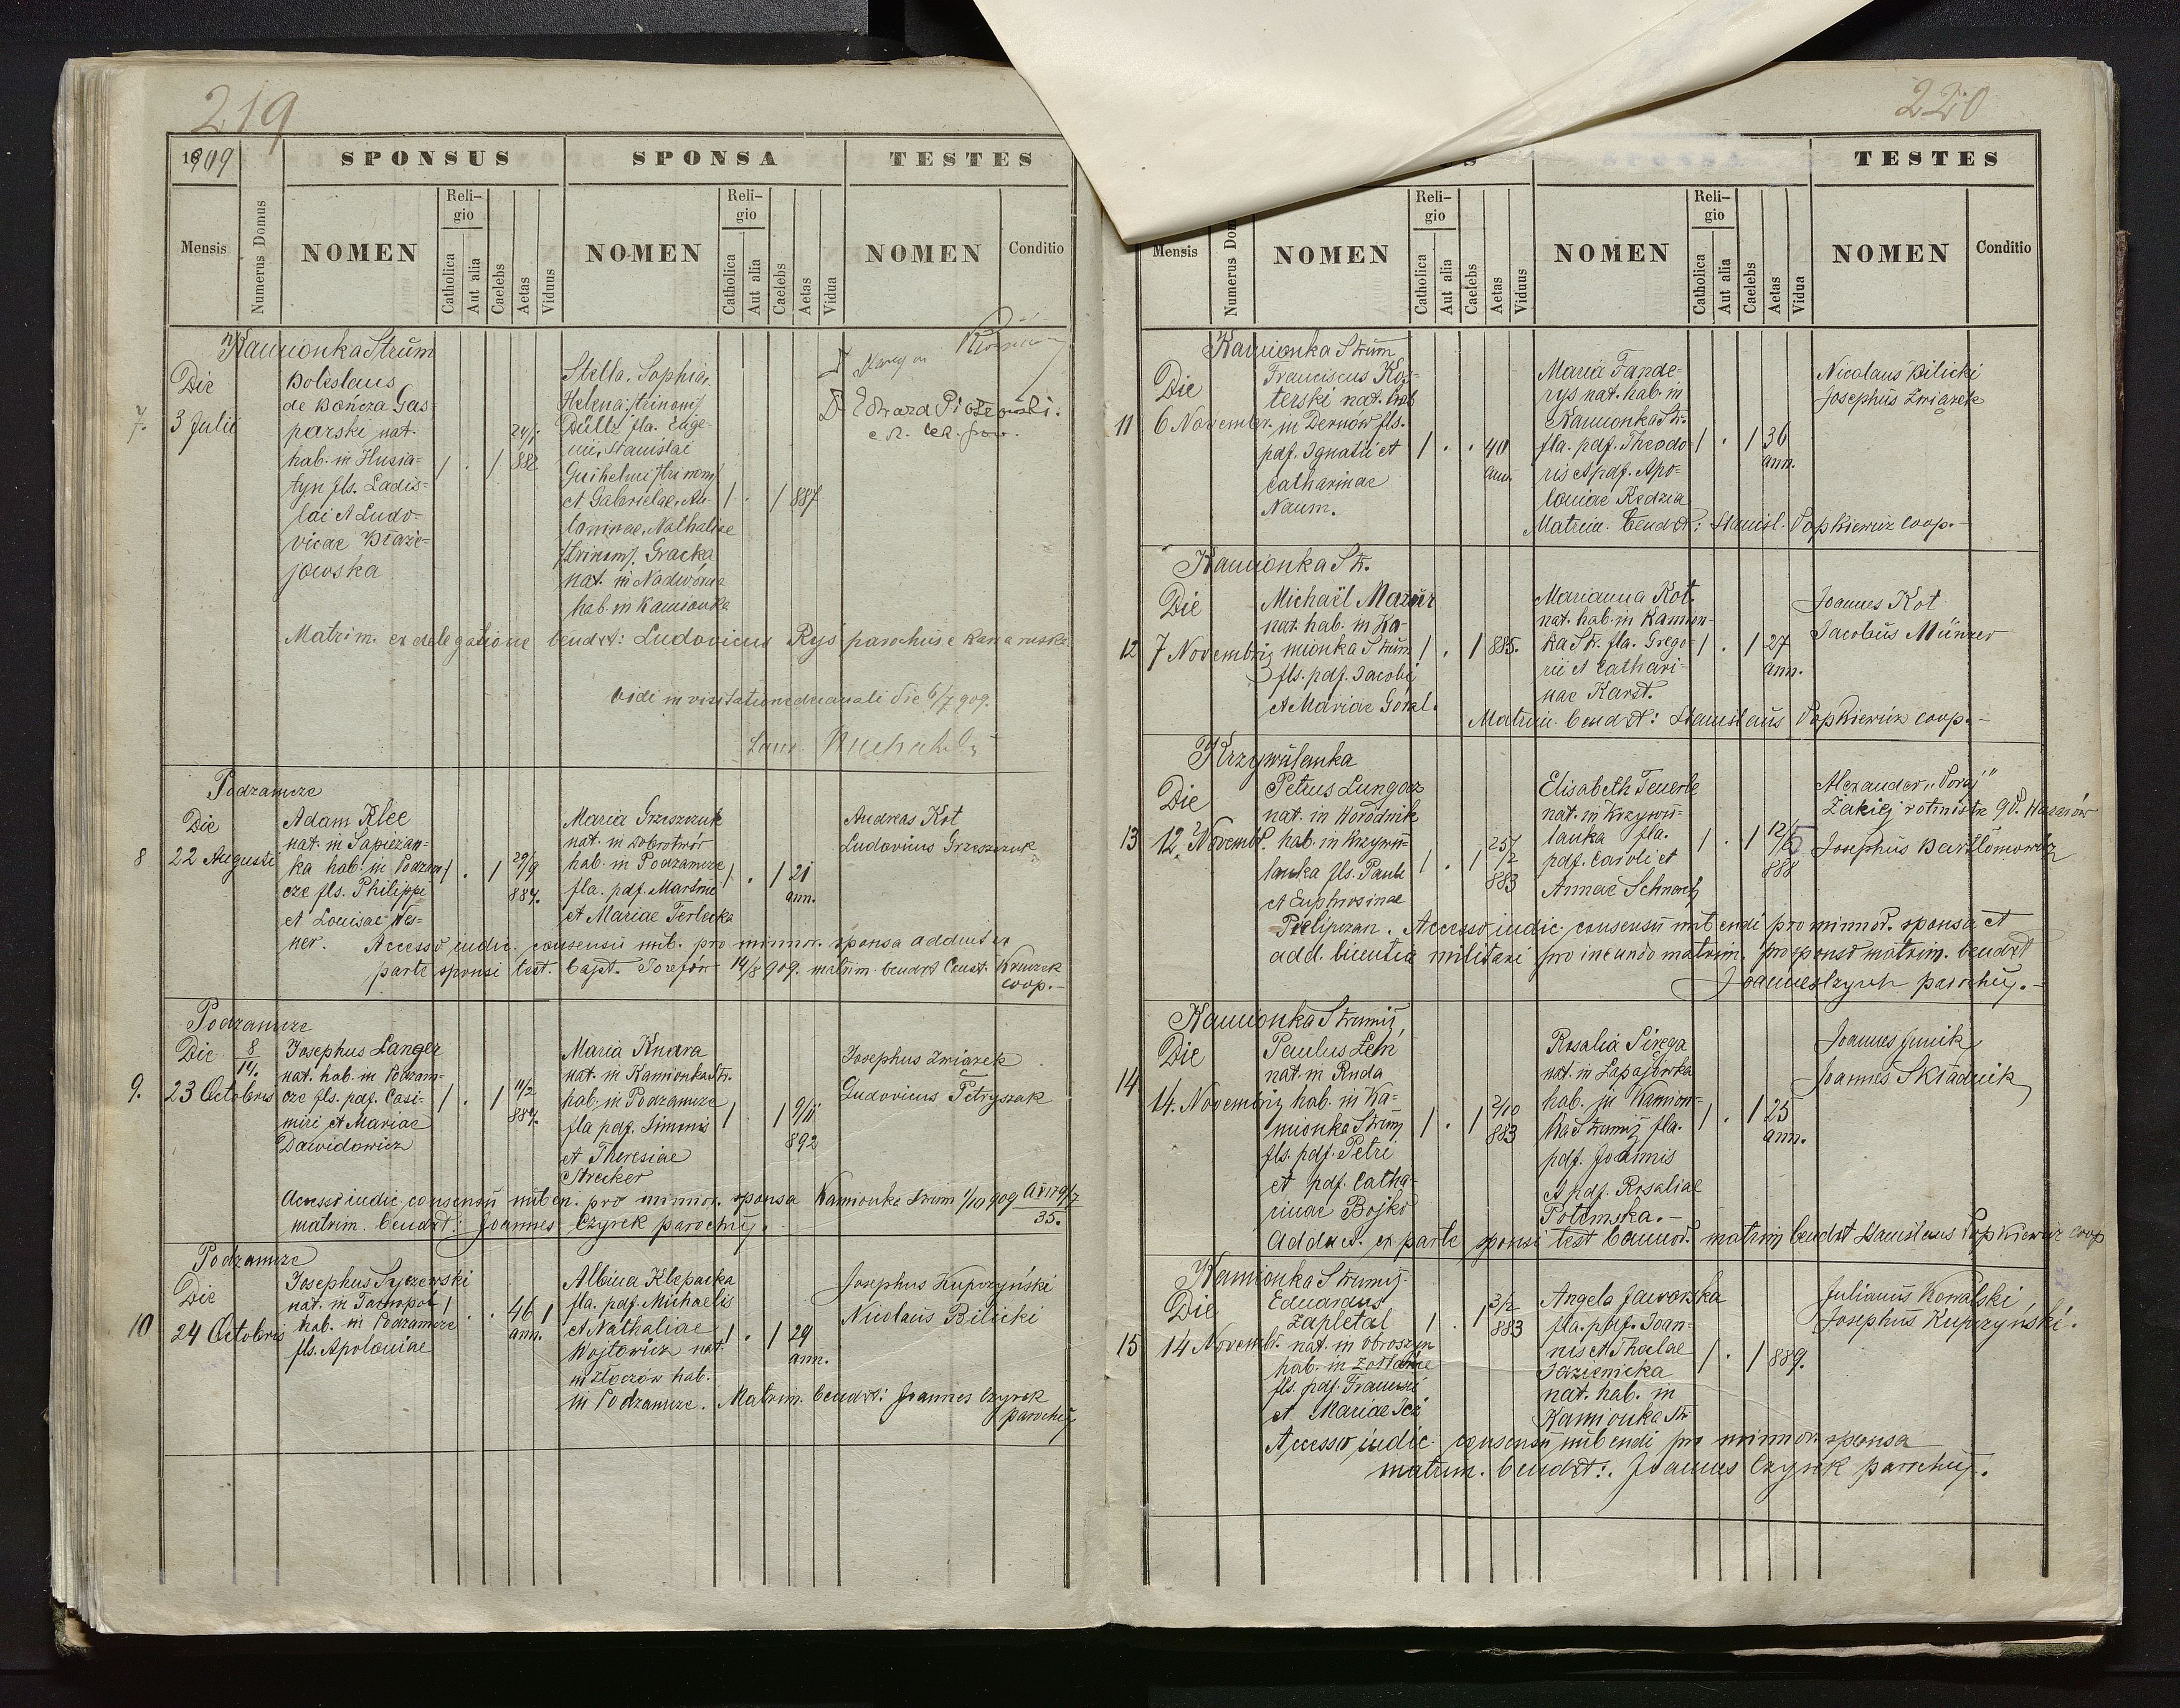 219
1909
SPONSUS
SPONSA
TESTES
Mensis
Numerus Domus
NOMEN
Reli-
gio
Catholica
Aut alia
Caelebs
Aetas
Viduus
NOMEN
Reli-
gio
Catholica
Aut alia
Caelebs
Aetas
Vidua
NOMEN
Conditio
Kamionka Strum
7.
Die
3 Julii
Boleslaus
de Bończa Gas-
parski nat.
hab. in Husia-
tyn fls. Ladis-
lai et Ludo-
vicae Błaże-
jowska
1 . 1
24/1
882
Stella, Sophia,
Helena /trinom/
Dülls fla. Euge-
nii, Stanislai
Guilhelmi /trinom/
et Gabrielae, An-
toninae, Nathaliae
/trinom/ Gracka
nat. in Nadwórna
hab. in Kamionka
1 . 1 887
Dr Edward Piotrowski.
Matrim. ex delegatione bendxt: Ludovicus Ryś parochus e Ka
Vidi in visitatione decanali die 6/7 909.
Podzamcze
8
Die
22 Augusti
Adam Klee
nat. in Sapieżan-
ka hab. in Podzam-
cze fls. Philippi
et Louisae Wes-
ner.
1 . 1
29/9
884.
Maria Grzeszczuk
nat. in Dobrotwór
hab. in Podzamcze
fla. pdf. Martini
et Mariae Terlecka
1 . 1 21
ann.
Andreas Kot
Ludovicus Grzeszczuk
Accesso iudic. consensu nub. pro minor. sponsa adduct ex
parte sponsi test. bapt. Józefów 14/8 909. matrim. bendxt Const. Kruczek
coop.-
Podzamcze
9.
Die
23 Octobris
8
14.
Josephus Langer
nat. hab. in Podzam-
cze fls. pdf. Casi-
miri et Mariae
Dawidowicz
1 . 1
11/2
884.
Maria Knara
nat. in Kamionka Str.
hab. in Podzamcze
fla pdf. Simonis
et Theresiae
Strecker
1 . 1
9/11
892
Josephus Związek
Ludovicus Petryszak
Accesso iudic. consensu nuben. pro minor. sponsa Kamionka Strum 1/10 909 A VII 9/7
35.
matrim. bendxt: Joannes Czyrek parochus.
Podzamcze
10
Die
24 Octobris
Josephus Syczewski
nat. in Tarnopol
hab. in Podzamcze
fls. Apoloniae
1 . . 46 1
ann.
Albina Klepacka
fla. pdf. Michaelis
et Nathaliae
Wojtowicz nat.
in Złoczów hab.
in Podzamcze.
1 . 1 29
ann.
Josephus Kupczyński
Nicolaus Bilicki
Matrim. bendxt: Joannes Czyrek
parochus
220
S
SPONSA
TESTES
Mensis
Numerus Dom
NOMEN
Reli-
gio
Catholica
Aut alia
Caelebs
Aetas
Viduus
NOMEN
Reli-
gio
Catholica
Aut alia
Caelebs
Aetas
Vidua
NOMEN
Conditio
Kamionka Strum
11
Die
6 November.
Franciscus Kos-
terski nat. hab
in Dernów fls.
pdf. Ignatii et
Catharinae
Naum.
1 . . 40
ann.
Maria Fande-
rys nat. hab. in
Kamionka Str.
fla. pdf. Theodo-
ris et pdf. Apo-
loniae Kędzia
1 . 1 36
ann.
Nicolaus Bilicki
Josephus Związek
Matrim. bendxt: Stanisl. Popkiewicz coop.-
Kamionka Str.
12
Die
7 Novembris
Michaël Mazur
nat. hab. in Ka-
mionka Strum
fls. pdf. Jacobi
et Mariae Góral.
1 . 1 885.
Marianna Kot
nat. hab. in Kamion-
ka Str. fla. Grego-
rii et Cathari-
nae Karst.
1 . 1 27
ann.
Joannes Kot
Jacobus Münzer
Matrim. bendxt: Stanislaus Popkiewicz coop.-
Krzywulanka
13
Die
12 Novembr.
Petrus Lungoz
nat. in Horodnik
hab. in Krzywu-
lanka fls. Pauli
et Euphrosinae
Pilipczan.
1 . 1
25/
1/2
883
Elisabeth Teuerle
nat. in Krzywu-
lanka fla.
pdf. Caroli et
Annae Schnerch
1 . 1
12/
888
Alexander "Poraj"
Żakiej rotmistrz 9 P. Huzarów
Josephus Bartłomowicz
Accesso iudic. consensu nubendi pro minor. sponsa et
add. licentia militari pro ineundo matrim. pro sponso matrim. bendxt
Joannes Czyrek parochus.-
Kamionka Strumij,
14
Die
14. Novembris
Paulus Łeń
nat. in Ruda
hab. in Ka-
mionka Strum
fls. pdf. Petri
et pdf. Catha-
rinae Bojko
1 . 1
2/10
883
Rosalia Sirega
nat. in Łapajówka
hab. in Kamion-
ka Strumij fla.
pdf. Joannis
et pdf. Rosaliae
Potomska.-
1 . 1 25
ann.
Joannes Junik
Joannes Składnik
Adduct. ex parte sponsi test bannor. matrim bendxt Stanislaus Popkiewicz coop
Kamionka Strumij.
15
Die
14 Novembr.
Eduardus
Zapletal
nat. in Obroszyn
hab. in Zostańce
fls. pdf. Francisci
et Mariae Jeż
1 . 1
3/2
883
Angela Jaworska
fla. pdf. Joan-
nis et Theclae
Jazienicka
nat. hab. in
Kamionka Str
1 . 1 889.
Julianus Kowalski,
Josephus Kupczyński.
Accesso iudic. consensu nubendi pro minor. sponsa
matrim. bendxt:. Joannes Czyrek parochus.